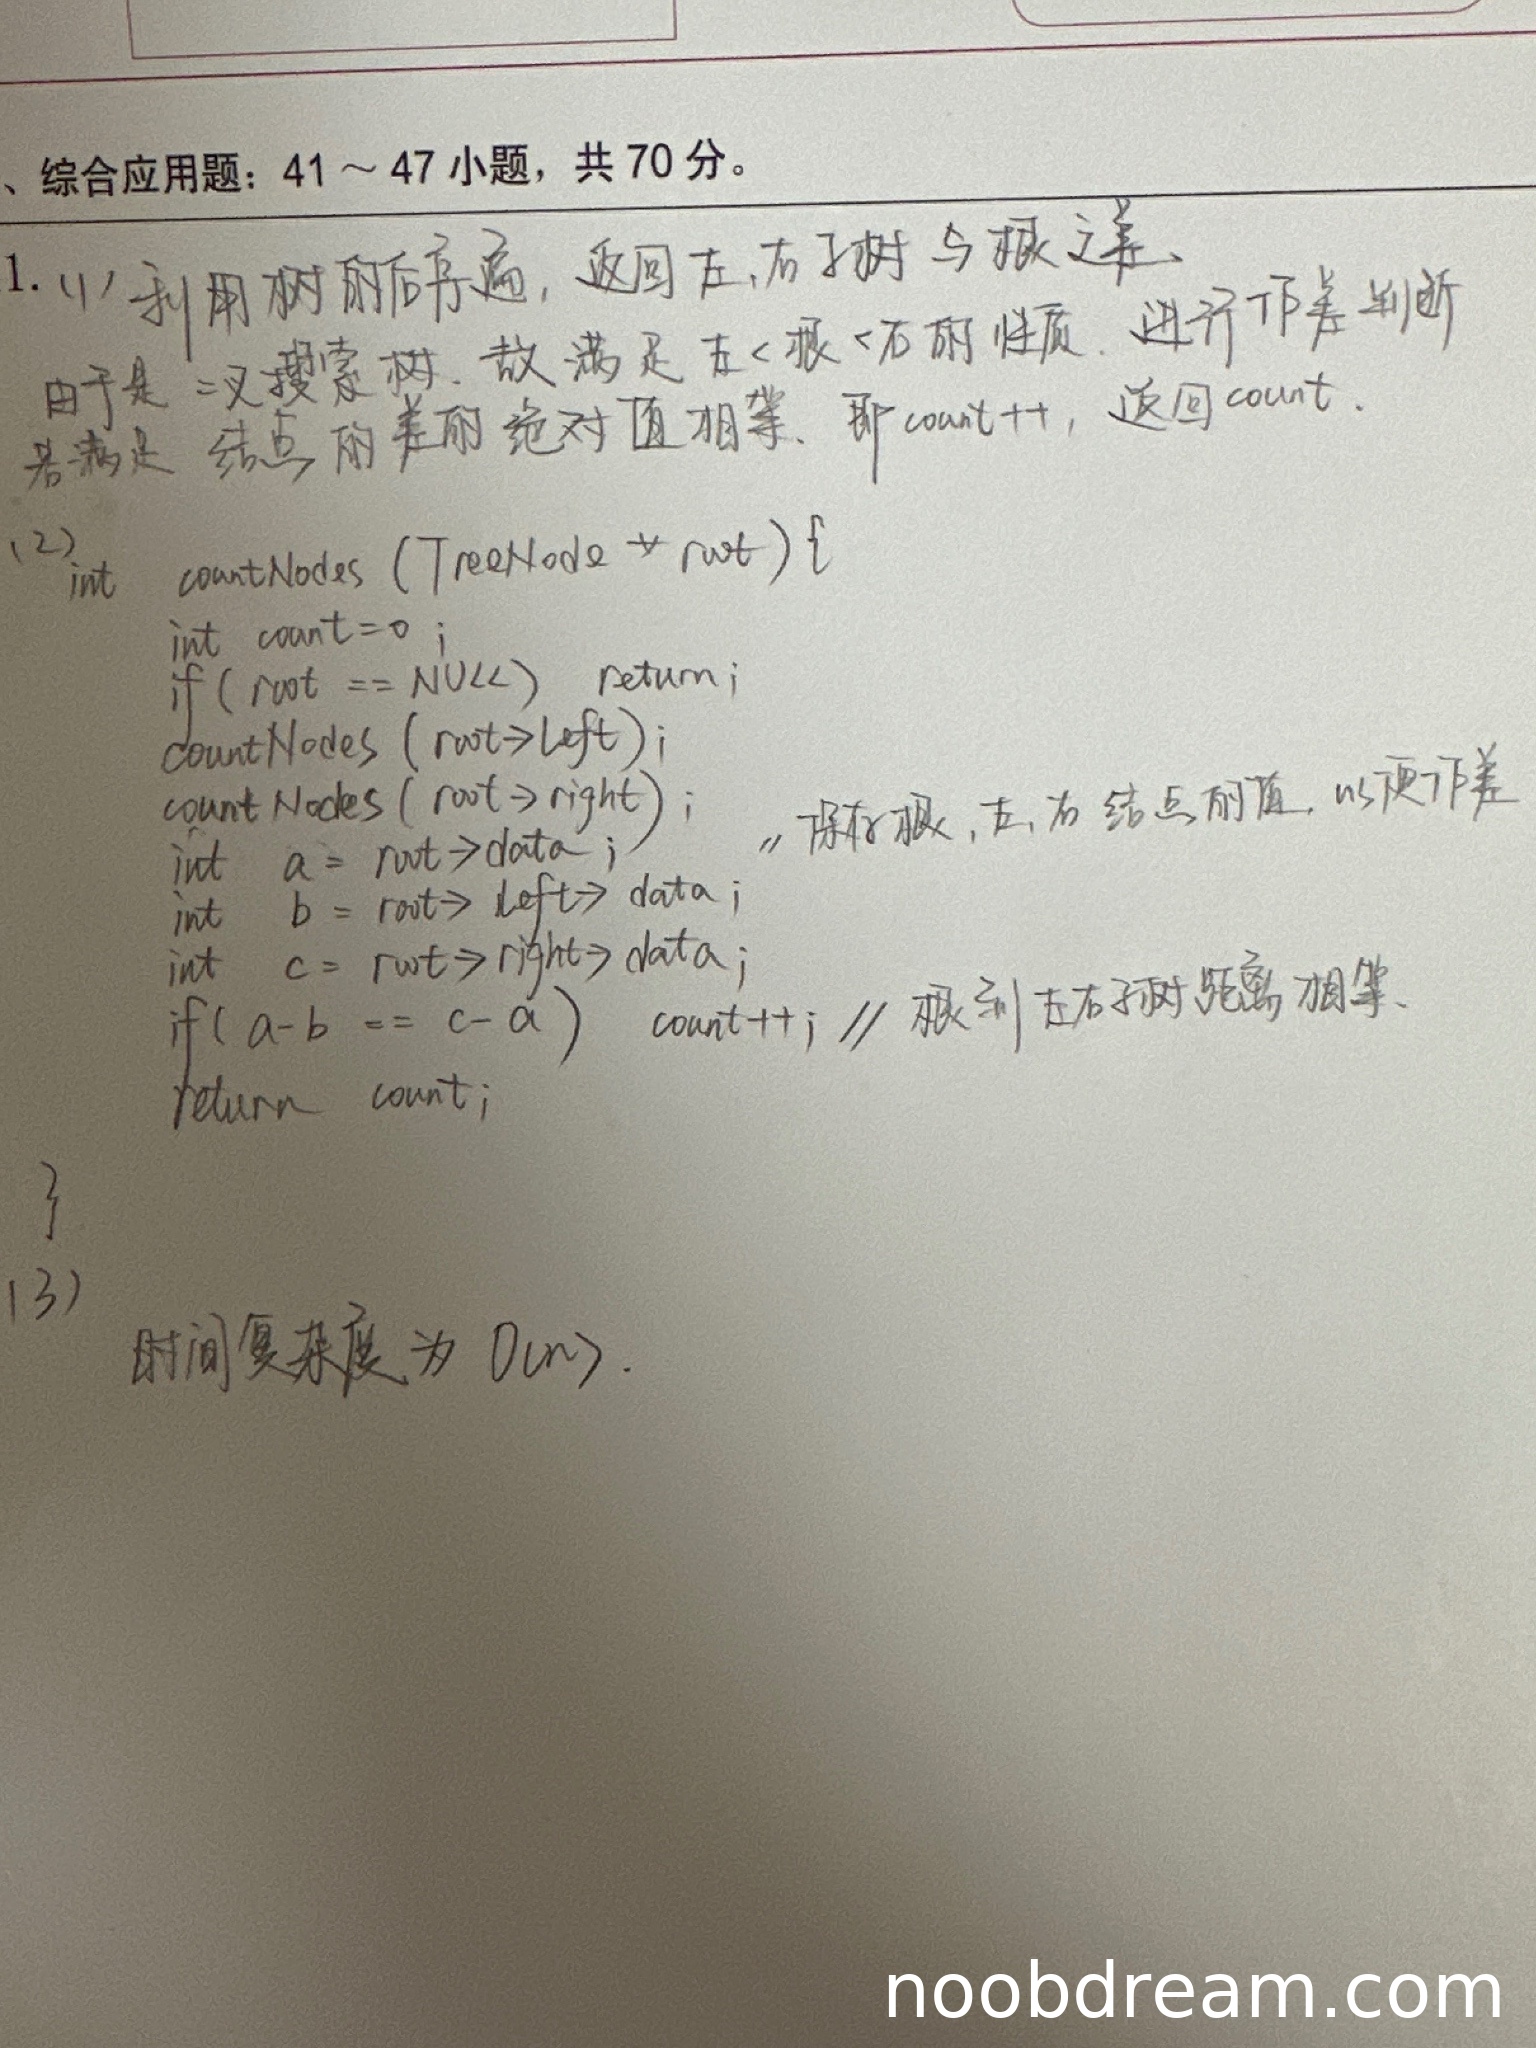 、综合应用题：41～47小题，共70分。
1. (1) 利用树的后序遍，返回左、右子树与根之差、
由于是二叉搜索树、故满足左<根<右的性质. 进行作差判断
若满足 结点的差的绝对值相等、即count++，返回count.
(2)
int countNodes (TreeNode * root) {
int count=0;
if(root == NULL) return;
countNodes (root->left);
countNodes (root->right);
int a = root->data; // 保存根,左,右结点的值,以便作差
int b = root->left->data;
int c = root->right->data;
if( a-b == c-a ) count++; // 根到左右子树距离相等、
return count;
}
(3)
时间复杂度为 O(n).
noobdream.com